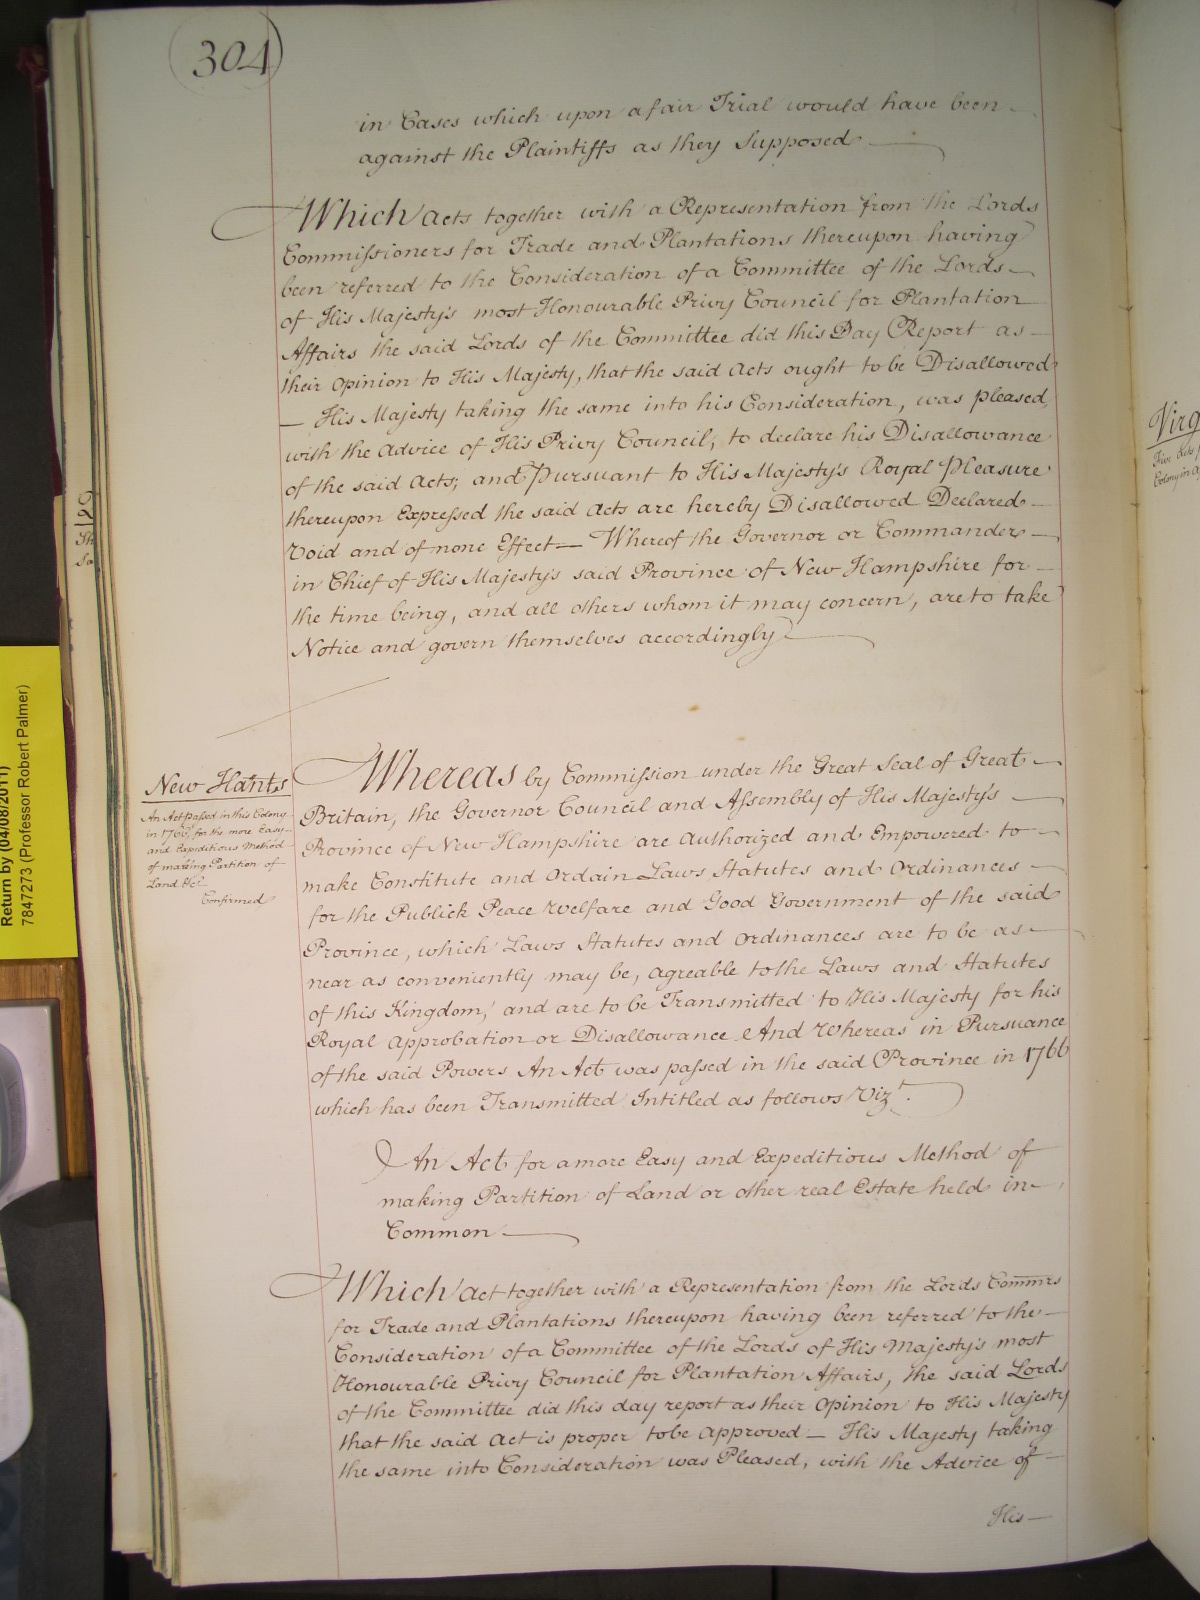 304
in Cases which upon a fair Trial would have been
against the Plaintiffs as they Supposed
Which Acts together with a Representation from the Lords
Commissioners for Trade and Plantations thereupon having
been referred to the Consideration of a Committee of the Lords
of His Majesty's most Honourable Privy Council for Plantation
Affairs the said Lords of the Committee did this Day Report as
their Opinion to His Majesty, that the said Acts ought to be Disallowed
— His Majesty taking the same into his Consideration, was pleased,
with the Advice of His Privy Council, to declare his Disallowance
of the said Acts; and Pursuant to His Majesty's Royal Pleasure
thereupon Expressed the said Acts are hereby Disallowed Declared
Void and of none Effect — Whereof the Governor or Commander
in Chief of His Majesty's said Province of New Hampshire for
the time being, and all others whom it may concern, are to take
Notice and govern themselves accordingly
New Hants
An Act passed in this Colony
in 1766, for the more Easy
and Expeditious Method
of making Partition of
Land &c.
Confirmed
Whereas by Commission under the Great Seal of Great
Britain, the Governor Council and Assembly of His Majesty's
Province of New Hampshire are Authorized and Empowered to
make Constitute and Ordain Laws Statutes and Ordinances
for the Publick Peace Welfare and Good Government of the said
Province, which Laws Statutes and Ordinances are to be as
near as conveniently may be, agreable to the Laws and Statutes
of this Kingdom, and are to be Transmitted to His Majesty for his
Royal Approbation or Disallowance And Whereas in Pursuance
of the said Powers An Act was passed in the said Province in 1766
which has been Transmitted Intitled as follows Vizt.
An Act for a more Easy and Expeditious Method of
making Partition of Land or other real Estate held in
Common
Which Act together with a Representation from the Lords Commrs
for Trade and Plantations thereupon having been referred to the
Consideration of a Committee of the Lords of His Majesty's most
Honourable Privy Council for Plantation Affairs, the said Lords
of the Committee did this day report as their Opinion to His Majesty
that the said Act is proper to be Approved — His Majesty taking
the same into Consideration was Pleased, with the Advice of
His —
Return by (04/08/2011)
7847273 (Professor Robert Palmer)
Five Acts
Colony in